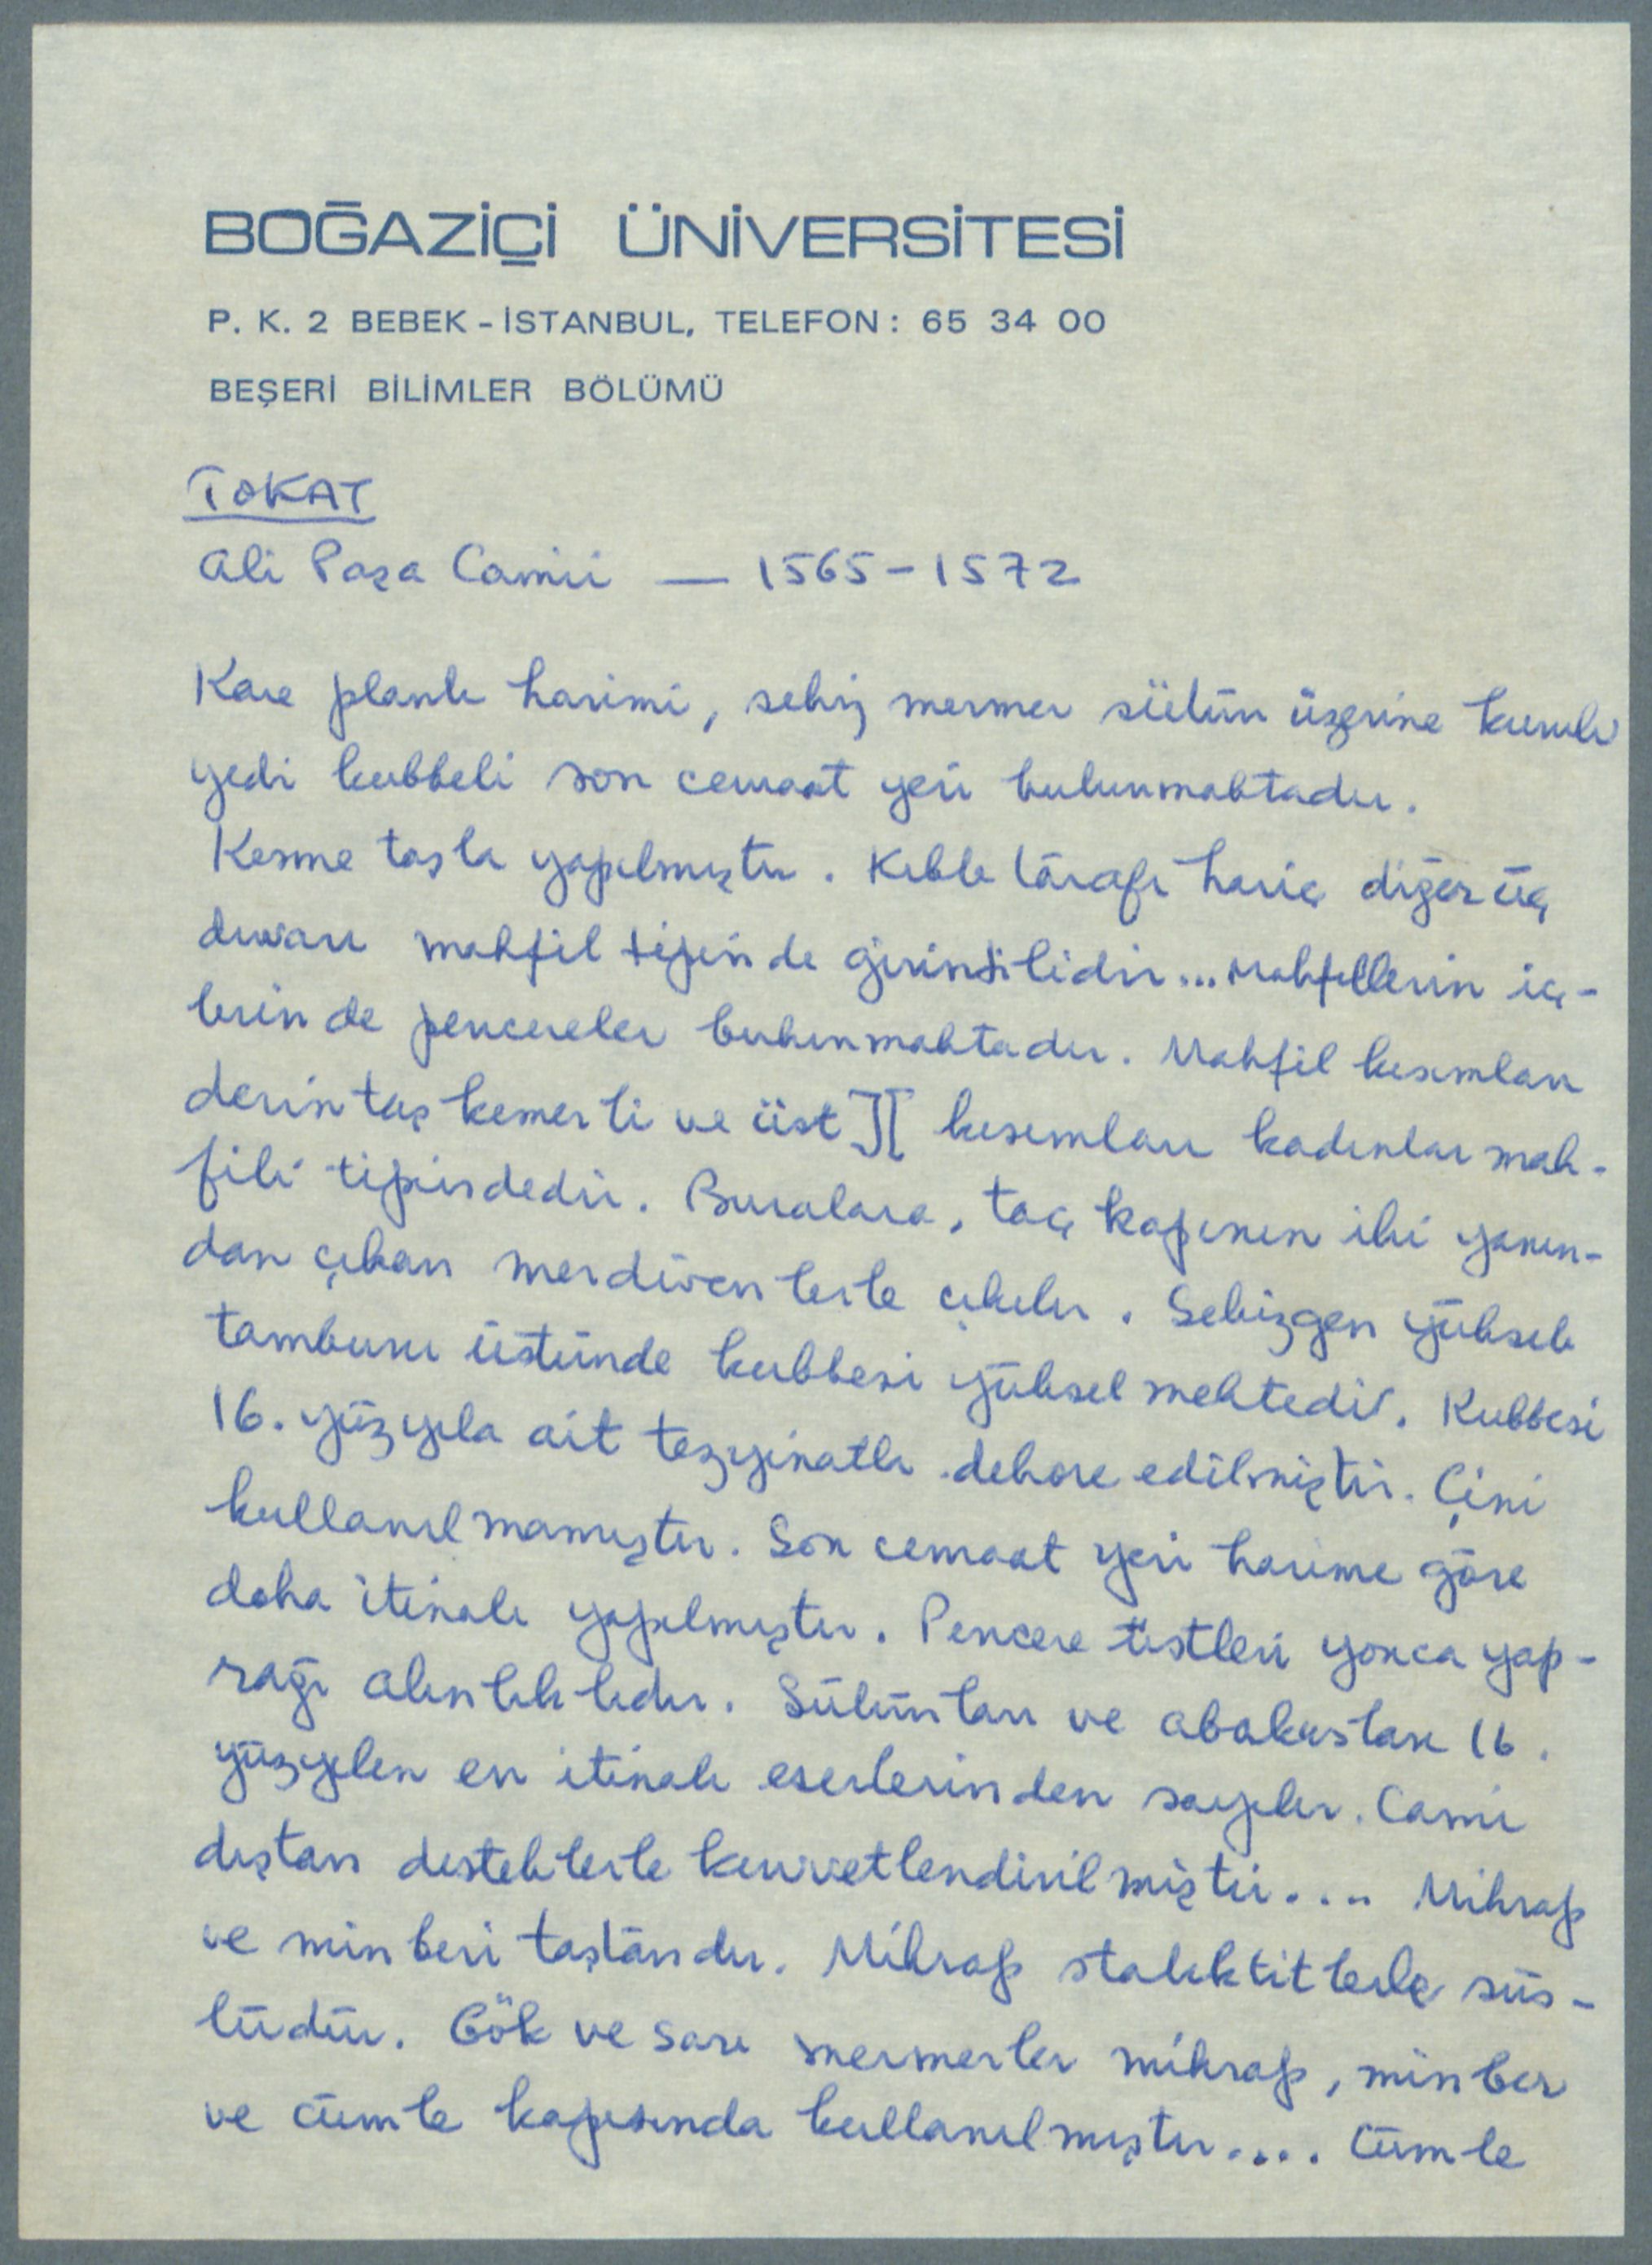 BOĞAZİÇİ ÜNİVERSİTESİ
P. K. 2 BEBEK - İSTANBUL, TELEFON : 65 34 00
BEŞERİ BİLİMLER BÖLÜMÜ
TOKAT
Ali Paşa Camii — 1565-1572
Kare planlı harimi, sekiz mermer sütun üzerine kurulu
yedi kubbeli son cemaat yeri bulunmaktadır.
Kesme taşla yapılmıştır. Kıble tarafı hariç diğer üç
duvarı mahfil tipinde girintilidir... Mahfillerin iç-
lerinde pencereler bulunmaktadır. Mahfil kısımları
derin taş kemerli ve üst ][ kısımları kadınlar mah-
fili tipindedir. Buralara, taç kapının iki yanın-
dan çıkan merdivenlerle çıkılır. Sekizgen yüksek
tamburu üstünde kubbesi yükselmektedir. Kubbesi
16. yüzyıla ait tezyinatla dekore edilmiştir. Çini
kullanılmamıştır. Son cemaat yeri harime göre
daha itinalı yapılmıştır. Pencere üstleri yonca yap-
rağı alınlıklıdır. Sütunları ve abaküsları 16.
yüzyılın en itinalı eserlerinden sayılır. Cami
dıştan desteklerle kuvvetlendirilmiştir.... Mihrap
ve minberi taştandır. Mihrap stalaktitlerle süs-
lüdür. Gök ve sarı mermerler mihrap, minber
ve cümle kapısında kullanılmıştır.... Cümle